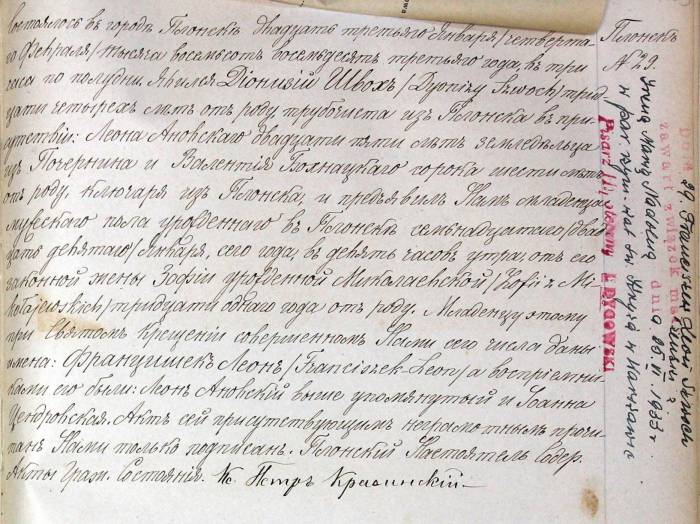 Состоялось въ городѣ Плонскѣ двадцать третьяго Января/четверта-
го Февраля/тысяча восемьсотъ восемьдесятъ третьяго года, въ три
часа по полудни. Явился Діонизій Швохъ/Dyonizy Szwoch/трид-
цати четырехъ лѣтъ отъ роду, трубочиста изъ Плонска въ при-
сутствіи: Леона Яновскаго двадцати пяти лѣтъ земледѣльца
изъ и Валентія сорока шести лѣтъ
отъ роду, ключаря изъ Плонска, и предъявилъ Намъ младенца
мужескаго пола урожденнаго въ Плонскѣ семьнадцатаго/двад-
цать девятаго/Января, сего года, въ девять часовъ утра, отъ его
законной жены Зофіи урожденной Миколаевской/Zofii z Mi-
kołajewskich/тридцати одного года отъ роду. Младенцу этому
при Святомъ Крещеніи совершенномъ Нами сего числа даны
имена: Францишекъ Леонъ/Franciszek Leon/а воспріемни-
ками его были: Леонъ Яновскій выше упомянутый и Іоанна
Цендровская. Актъ сей присутствующимъ неграмотнымъ прочи-
танъ Нами только подписанъ. Плонскій Настоятель Содер.
Акты Гражд. Состоянія. Кс. Петръ Красинскій
Плонскъ
№ 29.
zawarł związek
dnia 1933 r.